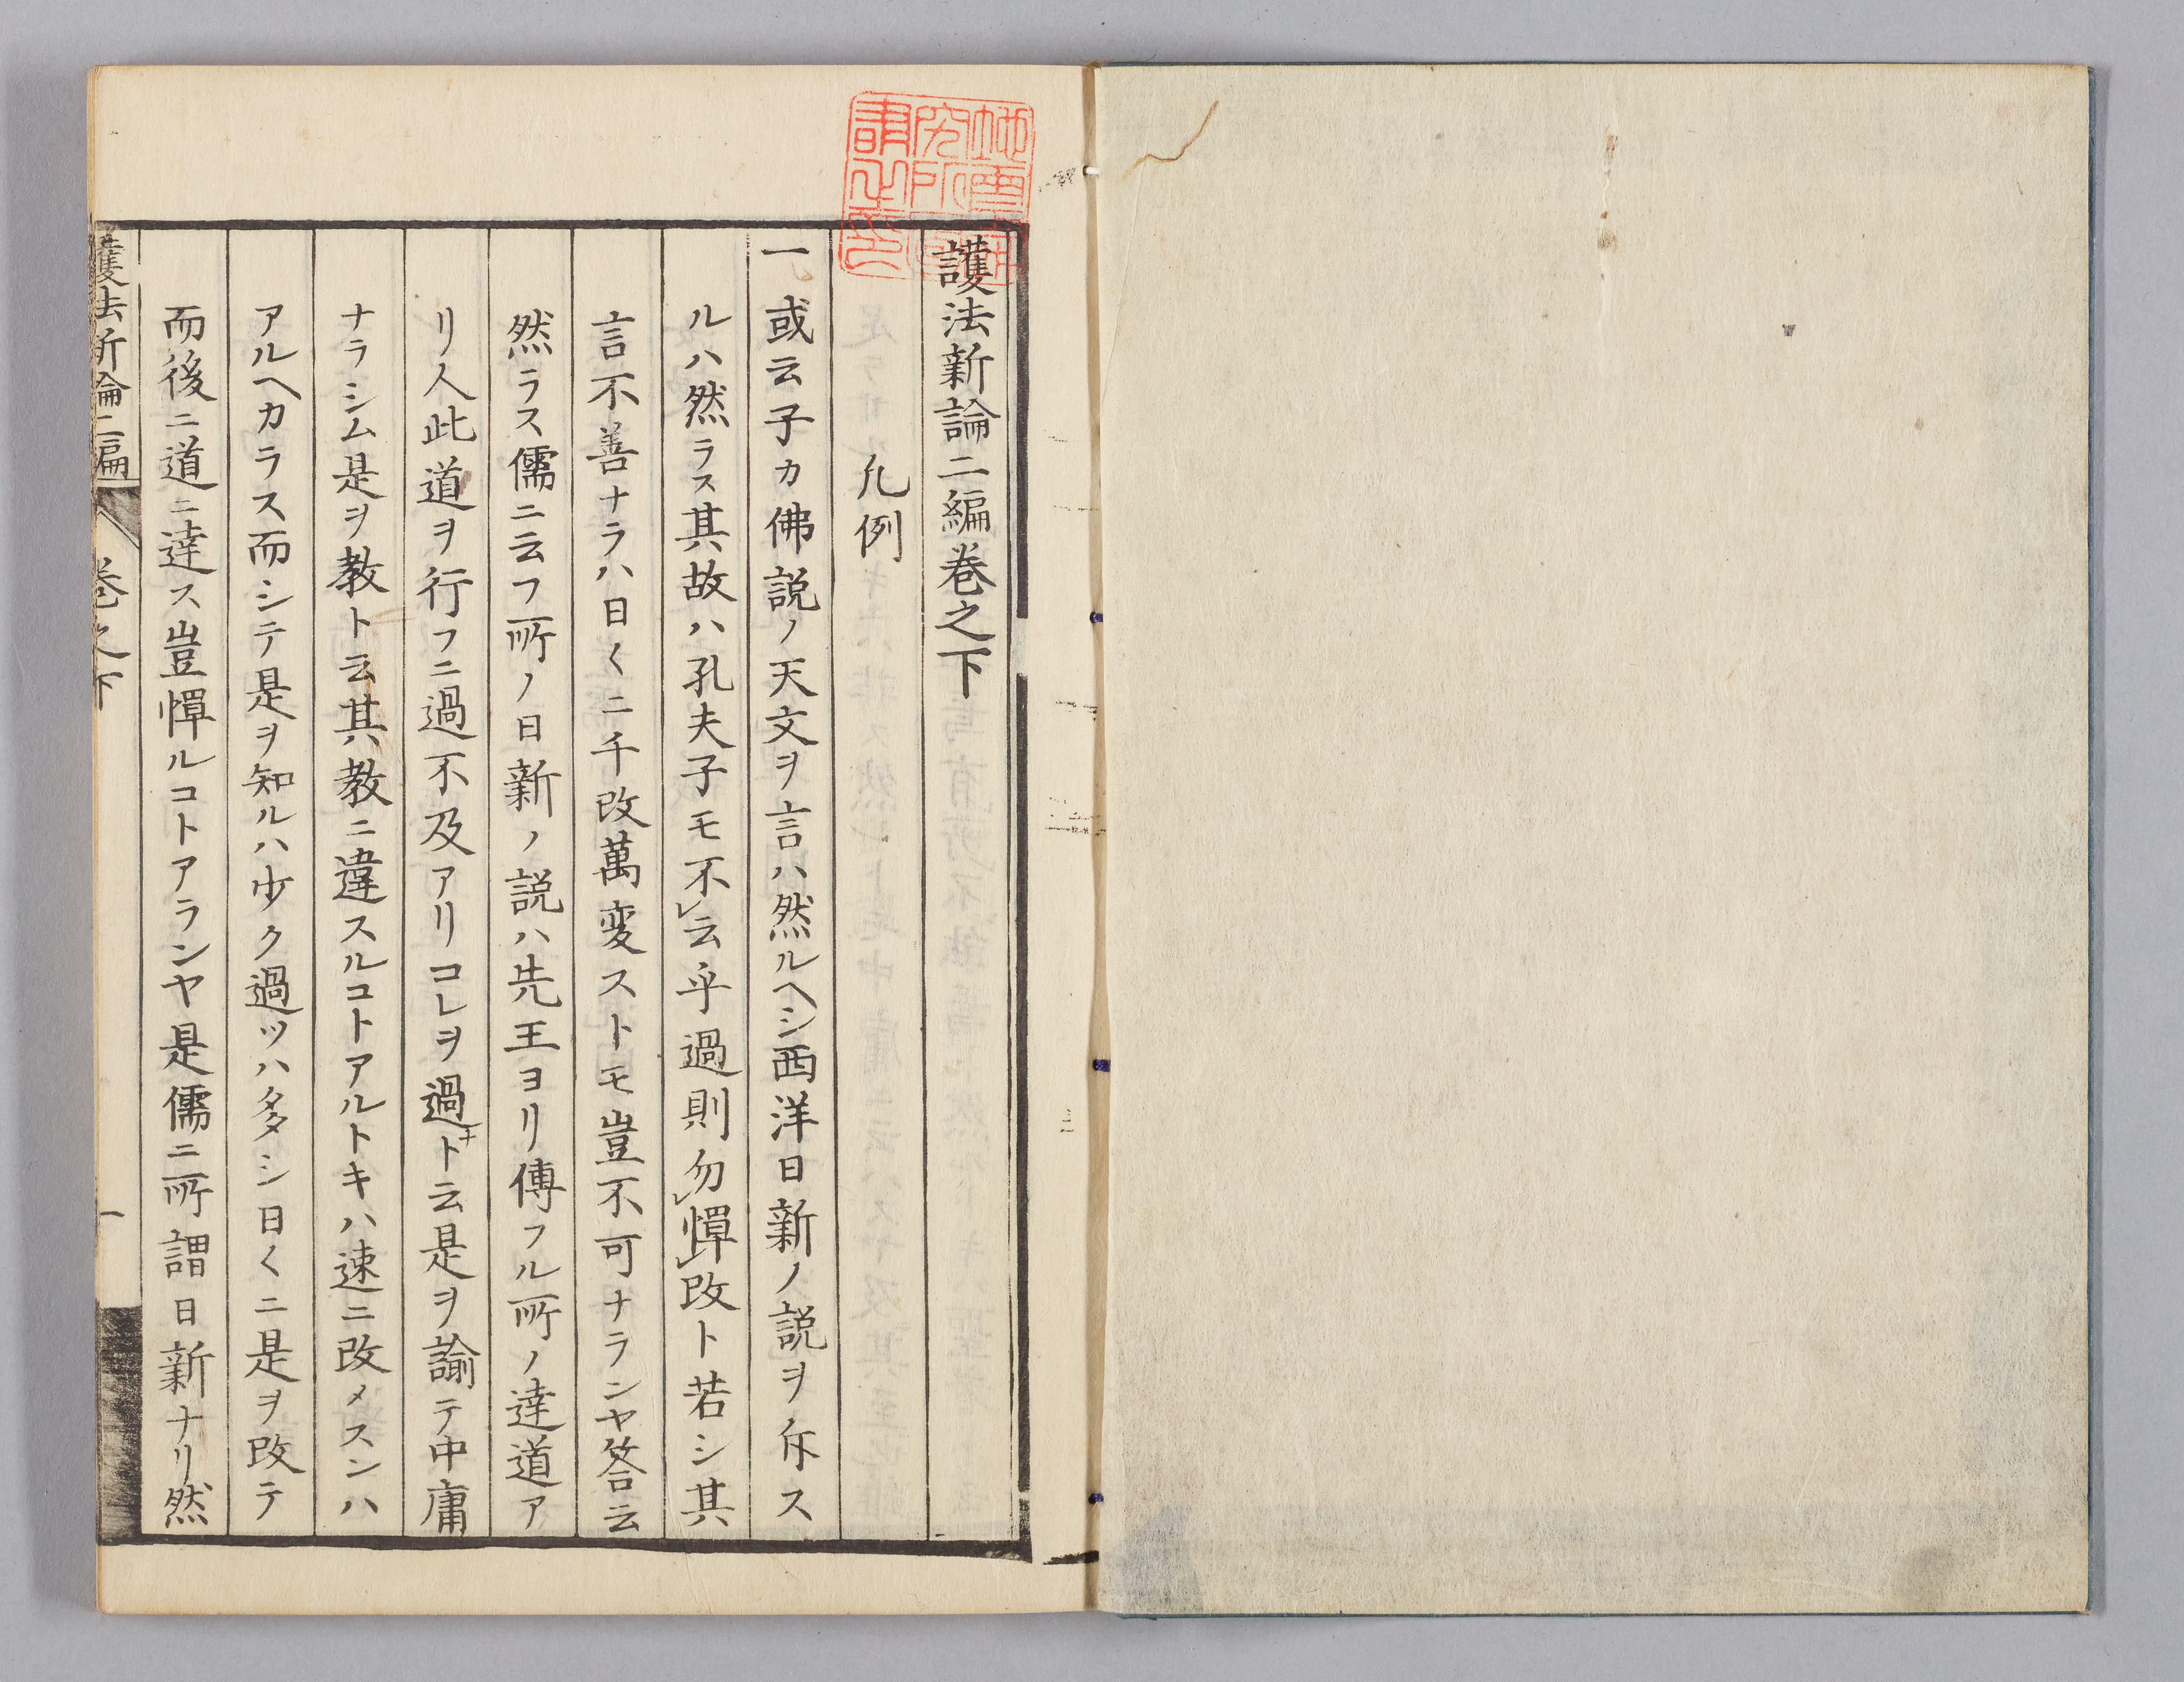 護法新論二編巻之下
凡例
一或云子カ佛説ノ天文ヲ言ハ然ルヘシ西洋日新ノ説ヲ斥ス
ルハ然ラス其故ハ孔夫子モ不レ云乎過則勿レ憚レ改ト若シ其
言不善ナラハ日〱ニ千改萬変ストモ豈不可ナランヤ答云
然ラス儒ニ云フ所ノ日新ノ説ハ先王ヨリ傳フル所ノ達道ア
リ人此道ヲ行フニ過不及アリコレヲ過ト云是ヲ諭テ中庸
ナラシム是ヲ教ト云其教ニ違スルコトアルトキハ速ニ改メスンハ
アルヘカラス而シテ是ヲ知ルハ少ク過ツハ多シ日〱ニ是ヲ改テ
而後ニ道ニ達ス豈憚ルコトアランヤ是儒ニ所謂日新ナリ然
護法新論二編 巻之下 一